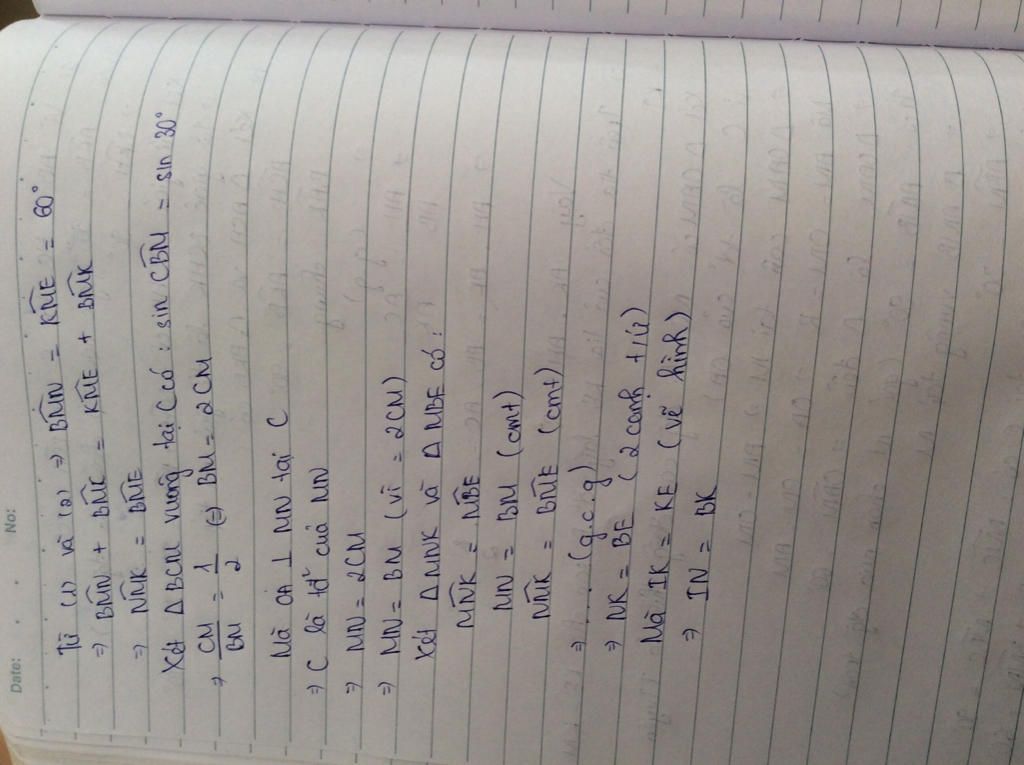 Date: . . No:
Từ (1) và (2) ⇒ BMN = KME = 60°
⇒ BMN + BMK = KME + BMK
⇒ NMK = BME
Xét Δ BCM vuông tại C có : sin CBM = sin 30°
⇒ CM/BM = 1/2 ⇔ BM = 2 CM
Mà OA ⊥ MN tại C
⇒ C là tđ² của MN
⇒ MN = 2CM
⇒ MN = BM (vì = 2CM)
Xét Δ MNK và Δ MBE có :
MNK = MBE
MN = BM (cmt)
NMK = BME (cmt)
⇒ .... (g.c.g)
⇒ NK = BE (2 cạnh t/ứ)
Mà IK = KE (vẽ hình)
⇒ IN = BK